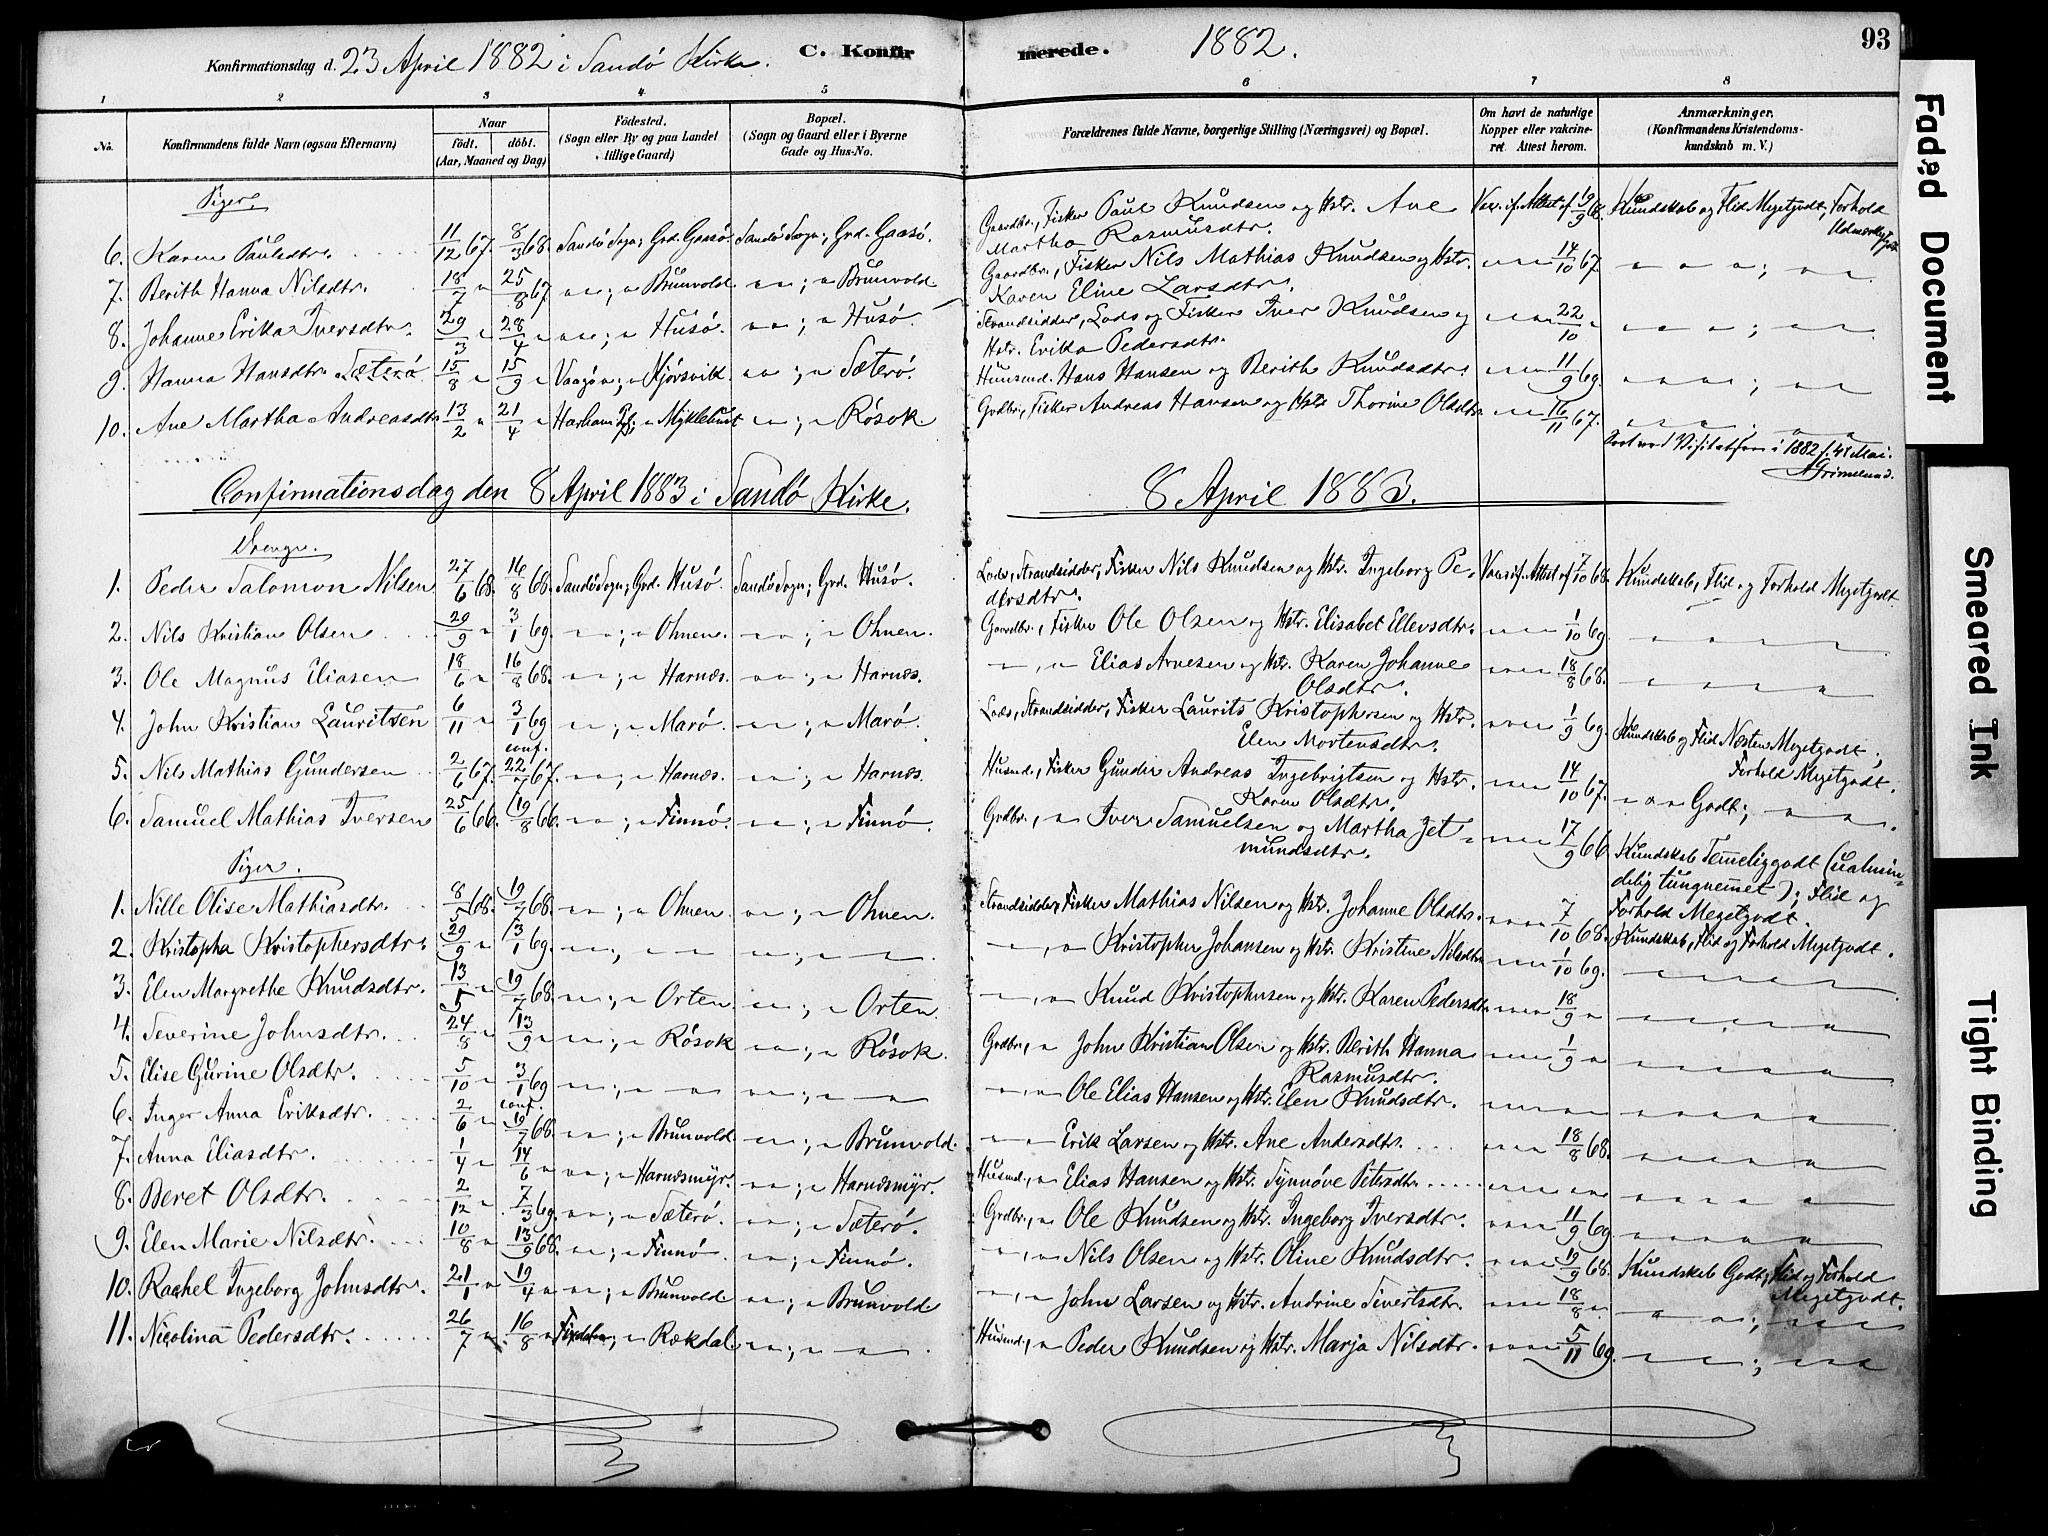 Konfirmationsdag d. 23 April 1882 i Sandö Kirke. C. Konfirmerede. 1882. 93
1 2 3 4. 5 6 7 8
No. Konfirmandens fulde Navn (ogsaa Efternavn) Naar födt. döbt. (Aar, Maaned og Dag) Födested. (Sogn eller By og paa Landet tillige Gaard) Bopæl. (Sogn og Gaard eller i Byerne Gade og Hus-No.
Forældrenes fulde Navne, borgerlige Stilling (Næringsvei) og Bopæl. Om havt de naturlige Kopper eller vakcineret. Attest herom. Anmærkninger. (Konfirmandens Kristendomskundskab m. V.)
Piger.
6. Karen Paulsdtr. 11/12 67. 8/3 68. Sandö Sogn; Grd. Gaasö. Sandö Sogn; Grd. Gaasö. Gaardbr., Fisker Paul Knudsen og Hstr. Ane Martha Rasmusdtr. Vac. if. Attest af 19/9 68. Kundskab og Flid Megetgodt, Forhold Udmærket godt
7. Berith Hanna Nilsdtr. 18/7 " 25/8 67 " " ; " Brunvold. " " ; " Brunvold Gaardbr., Fisker Nils Mathias Knudsen og Hstr. Karen Eline Larsdtr. " " " 14/10 67. " " " ; " "
8. Johanne Erika Iversdtr. 29/3 " 28/4 " " " ; " Husö. " " ; " Husö. Strandsidder, Lods og Fisker Iver Knudsen og Hstr. Erika Pedersdtr. " " " 22/10 " " " " ; " "
9. Hanna Hansdtr. Sæterö 15/8 " 15/9 " Vaagö " ; " Kjörsvik. " " ; " Sæterö. Huusmd. Hans Hansen og Berith Knudsdtr. " " " 11/9 69. " " " ; " "
10. Ane Martha Andreasdtr. 13/2 " 21/4 " Harham Pgj. " Myklebust " " ; " Rösok. Grdbr., Fisker Andreas Hansen og Hstr. Thorine Olsdtr. " " 16/11 67. " " " . " "
Foreved Visitatsen i 1882 f. 4 Mai.
A Grimelund.
Confirmationsdag den 8 April 1883 i Sandö Kirke. 8 April 1883.
Drenge.
1. Peder Salomon Nilsen 27/6 68. 16/8 68. Sandö Sogn; Grd. Husö. Sandö Sogn; Grd. Husö. Lods, Strandsidder, Fisker Nils Knudsen og Hstr. Ingeborg Pedersdtr. Vac. if. Attest af 7/10 68. Kundskab, Flid og Forhold Megetgodt.
2. Nils Kristian Olsen 29/9 " 3/1 69. " " ; " Ohnen. " " ; " Ohnen. Gaardbr., Fisker Ole Olsen og Hstr. Elisabet Ellevsdtr. " " " 1/10 69. " " " "
3. Ole Magnus Eliasen 18/6 " 16/8 68. " " ; " Harnæs. " " ; " Harnæs. " , " Elias Arnesen og Hstr. Karen Johanne Olsdtr. " " " 18/8 68. " " " "
4. John Kristian Lauritsen 6/11 " 3/1 69 " " ; " Marö. " " ; " Marö. Lods, Strandsidder, Fisker Laurits Kristophersen og Hstr. Elen Mortensdtr. " " " 1/9 69. Kundskab og Flid Næsten Megetgodt; Forhold Megetgodt.
5. Nils Mathias Gundersen 2/6 67. conf. 22/7 67. " " ; " Harnæs. " " ; " Harnæs. Husmd., Fisker Gunder Andreas Ingebrigtsen og Hstr. Karen Olsdtr. " " " 14/10 67. " " " Godt; " " .
6. Samuel Mathias Iversen 25/6 66. 19/8 66. " " ; " Finnö. " " ; " Finnö. Grdbr., " Iver Samuelsen og Martha Jetmundsdtr. " " " 17/9 66 Kundskab Temeliggodt (ualmindelig tungnemmet); Flid og Forhold Megetgodt.
Piger.
1. Nille Olise Mathiasdtr. 8/5 68. 19/7 68. " " ; " Ohnen. " " ; " Ohnen. Strandsidder, Fisker Mathias Nilsen og Hstr. Johanne Olsdtr. " " " 7/10 68. Kundskab, Flid og Forhold Megetgodt.
2. Kristopha Kristophersdtr. 29/9 " 3/1 69. " " ; " " " " ; " " " , " Kristopher Johansen og Hstr. Kristine Nilsdtr. " " " 1/10 69. " " " "
3. Elen Margrethe Knudsdtr. 13/5 " 19/7 68. " " ; " Orten " " ; " Orten. " , " Knud Kristophersen og Hstr. Karen Pedersdtr. " " " 18/9 " " " " "
4. Severine Johnsdtr. 24/8 " 13/9 " " " ; " Rösok " " ; " Rösok. Grdbr., " John Kristian Olsen og Hstr. Berith Hanna Rasmusdtr. " " " 1/9 " " " " "
5. Elise Gurine Olsdtr. 5/10 " 3/1 69 " " ; " " " " ; " " " , " Ole Elias Hansen og Hstr. Elen Knudsdtr. " " " " " " " "
6. Inger Anna Eriksdtr. 2/6 " conf. 19/7 68. " " ; " Brunvold. " " ; " Brunvold. " " Erik Larsen og Hstr. Ane Andersdtr. " " " 18/8 68. " " " "
7. Anna Eliasdtr. 1/4 " 14/6 " " " ; " Harnæsmyr. " " ; " Harnæsmyr. Husmd., " Elias Hansen og Hstr. Synnöve Petersdtr. " " " " " " " " "
8. Beret Olsdtr. 2/12 " 7/3 69. " " ; " Sæterö. " " ; " Sæterö. Grdbr., " Ole Knudsen og Hstr. Ingeborg Iversdtr. " " " 11/9 69 " " " "
9. Elen Marie Nilsdtr. 10/8 " 13/9 68. " " ; " Finnö. " " ; " Finnö. " , " Nils Olsen og Hstr. Oline Knudsdtr. " " " 19/9 68. Kundskab Godt; Flid og Forhold Megetgodt.
10. Rachel Ingeborg Johnsdtr. 21/1 " 19/4 " " " ; " Brunvold. " " ; " Brunvold " , " John Larsen og Hstr. Andrine Sivertsdtr. " " " 18/8 " " " " ; " " "
11. Nicolina Pedersdtr. 26/7 " 16/8 " ; " Rækdal " " ; " " . Husmd., " Peder Knudsen og Hstr. Marja Nilsdtr. " " " 5/11 69. " " ; " "
Faded Document
Smeared Ink
Tight Binding